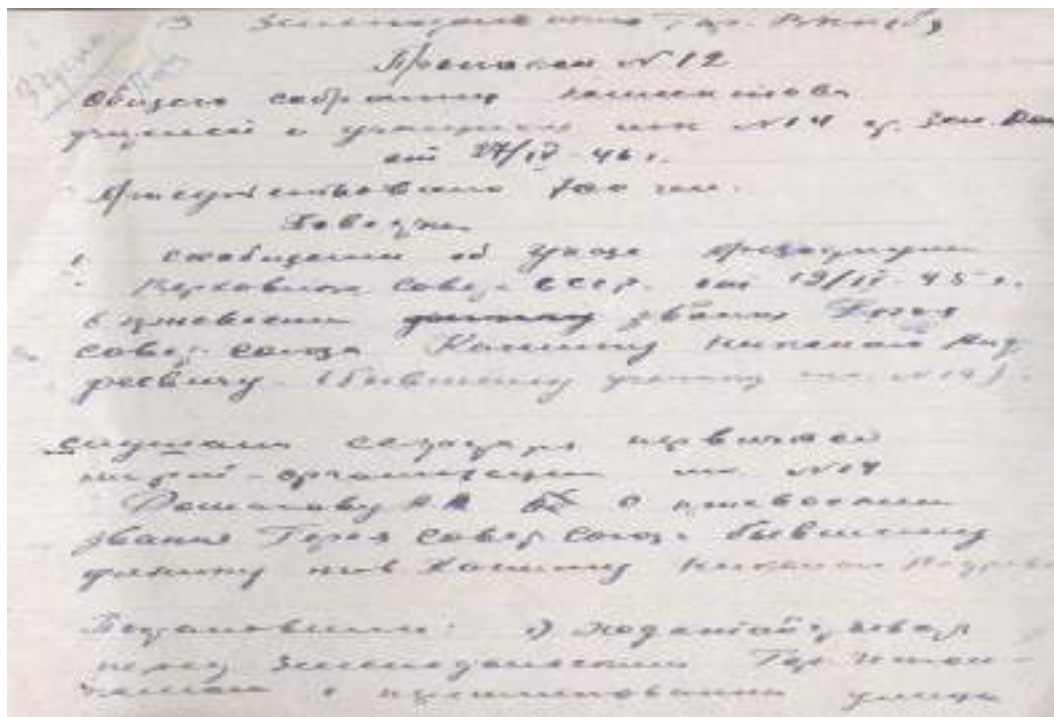 В Зеленодольский Гор.
Протокол № 12
Общего собрания коллектива
учителей и учащихся шк №14 г. Зел. Дол
от 27/IV-46 г.
Присутствовало 700 чел.
Повестка
1. Сообщение об Указе Президиума
Верховного Совет. СССР. от 19/IV-45 г.
о присвоении звания Героя
Совет. Союза Николаю Анд
реевичу (бывшему ученику шк. №14).
Слушали секретаря первичной
парт-организации шк. №14
о присвоении
звания Героя Совет. Союза бывшему
ученику Николаю Андрее
Постановили: 1) Ходатайствовать
перед Зеленодольским Гор.
о переименовании улицы